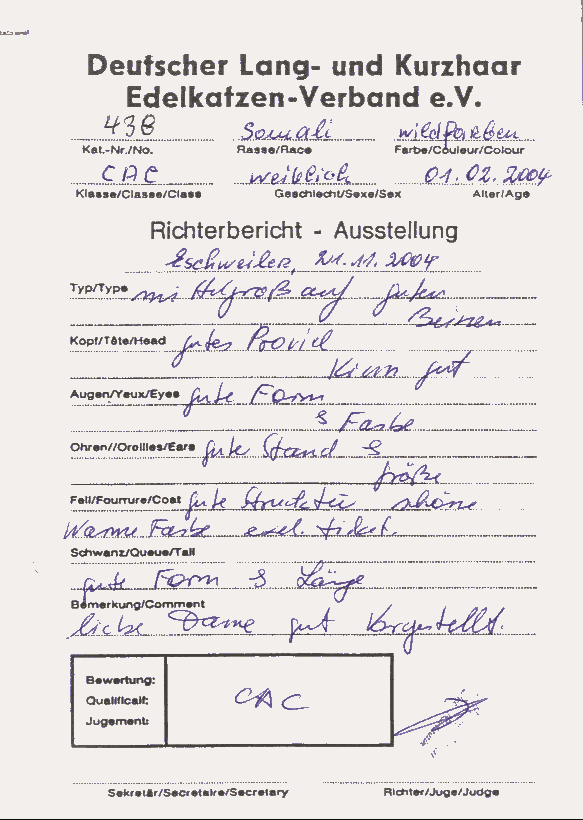 Deutscher Lang- und Kurzhaar
Edelkatzen-Verband e.V.
438 Somali wildfarben
Kat.-Nr./No. Rasse/Race Farbe/Couleur/Colour
CAC weiblich 01.02.2004
Klasse/Classe/Class Geschlecht/Sexe/Sex Alter/Age
Richterbericht - Ausstellung
Eschweiler, 21.11.2004
Typ/Type mittelgroß auf guten
Beinen
Kopf/Tête/Head gutes Provil
Kinn gut
Augen/Yeux/Eyes gute Form
& Farbe
Ohren//Oreilles/Ears gute Stand &
größe
Fell/Fourrure/Coat gute Strucktür schöne
Warme Farbe exel. ticket.
Schwanz/Queue/Tail
gute Form & Länge
Bemerkung/Comment
liebe Dame gut Vorgestellt.
Bewertung:
Qualificatif: CAC
Jugement:
Sekretär/Secretaire/Secretary Richter/Juge/Judge